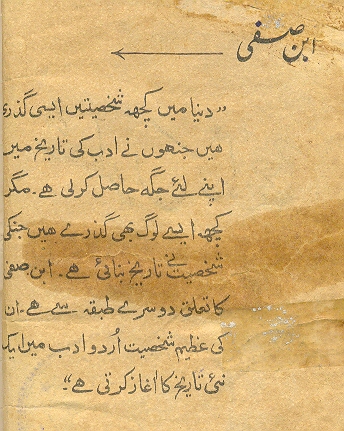 ابن صفی
”دنیا میں کچھ شخصیتیں ایسی گذری
ھیں جنھوں نے ادب کی تاریخ میں
اپنے لئے جگہ حاصل کرلی ھے۔ مگر
کچھ ایسے لوگ بھی گذرے ھیں جنکی
شخصیت نے تاریخ بنائی ھے۔ ابن صفی
کا تعلق دوسرے طبقہ سے ھے۔ ان
کی عظیم شخصیت اُردو ادب میں ایک
نئی تاریخ کا آغاز کرتی ھے“۔